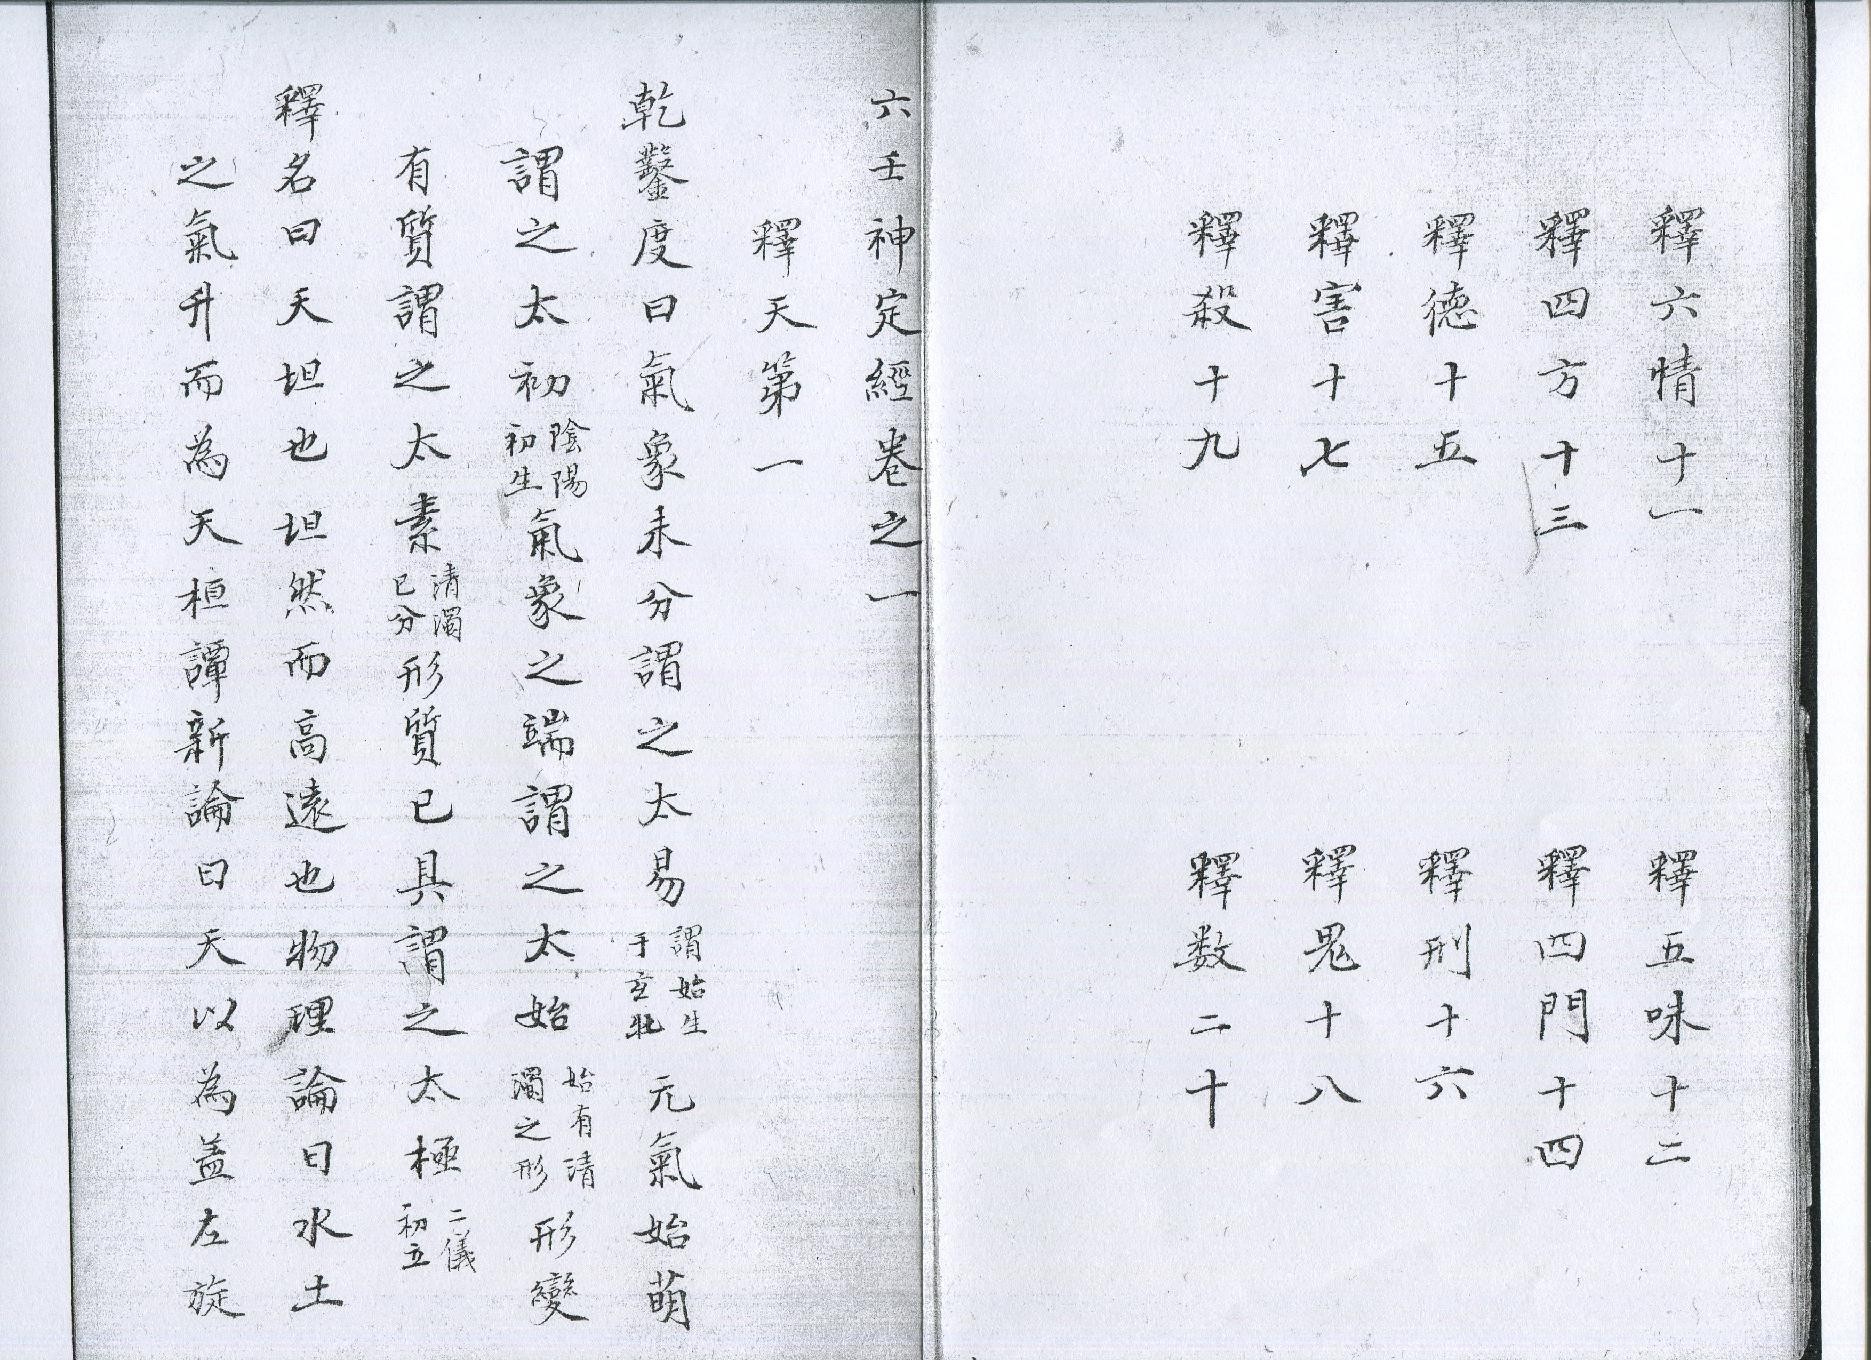 釋六情十一　釋五味十二
釋四方十三　釋四門十四
釋德十五　釋刑十六
釋害十七　釋鬼十八
釋殺十九　釋数二十
六壬神定經卷之一
釋天第一
乾鑿度曰氣象未分謂之太易謂始生于玄牝元氣始萌
謂之太初陰陽初生氣象之端謂之太始始有清濁之形形變
有質謂之太素清濁已分形質已具謂之太極二儀初立
釋名曰天坦也坦然而高遠也物理論曰水土
之氣升而為天桓譚新論曰天以為盖左旋